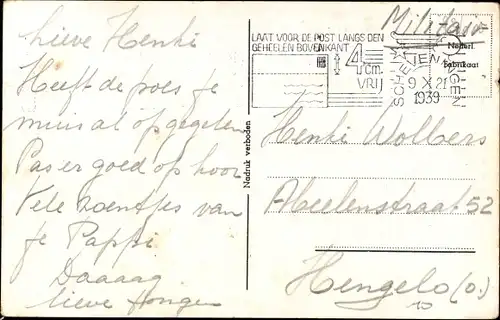 Lieve Henki
Heeft de poes je
muis al opgegeten
Pas er goed op hoor
Vele zoentjes van
je Pappi
Daaaag
lieve Jongen
Nadruk verboden
LAAT VOOR DE POST LANGS DEN
GEHEELEN BOVENKANT
4 cm.
VRIJ
SCHEVENINGEN
9 X 21
1939
Militair
Nederl.
fabrikaat
Henki Wolbers
straat 52
Hengelo (O.)